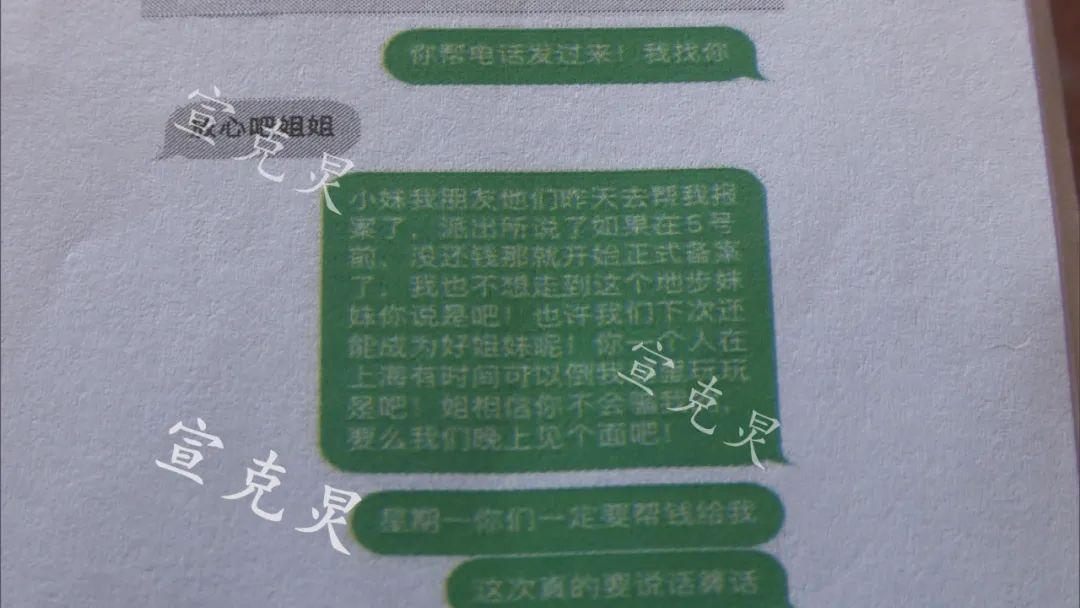 你帮电话发过来！我找你
放心吧姐姐
小妹我朋友他们昨天去帮我报
案了，派出所说了如果在5号
前，没还钱那就开始正式备案
了，我也不想走到这个地步妹
妹你说是吧！也许我们下次还
能成为好姐妹呢！你一个人在
上海有时间可以倒我 玩玩
是吧！姐相信你不会骗我
要么我们晚上见个面吧！
星期一你们一定要帮钱给我
这次真的要说话算话
宣克炅
宣克炅
宣克炅